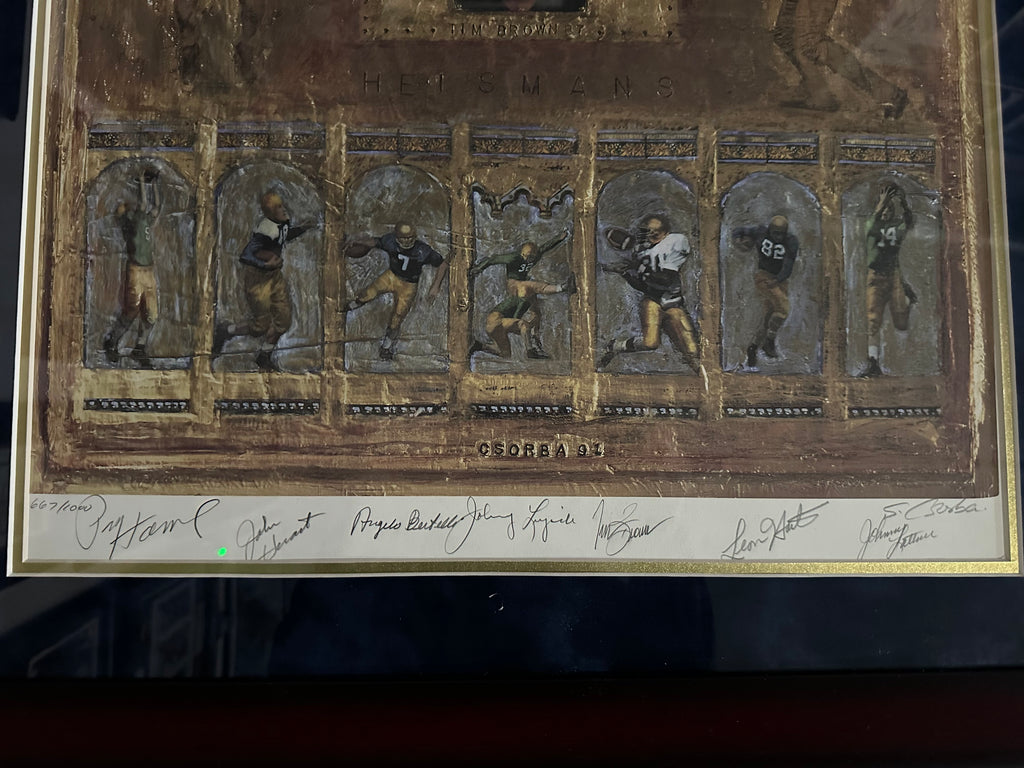 TIM BROWN
HEISMANS
7
81
82
14
CSORBA 91
667/1000
John Huarte
Angelo Bertelli
Johnny Lujack
Tim Brown
Leon Hart
S. Csorba.
Johnny Lattner